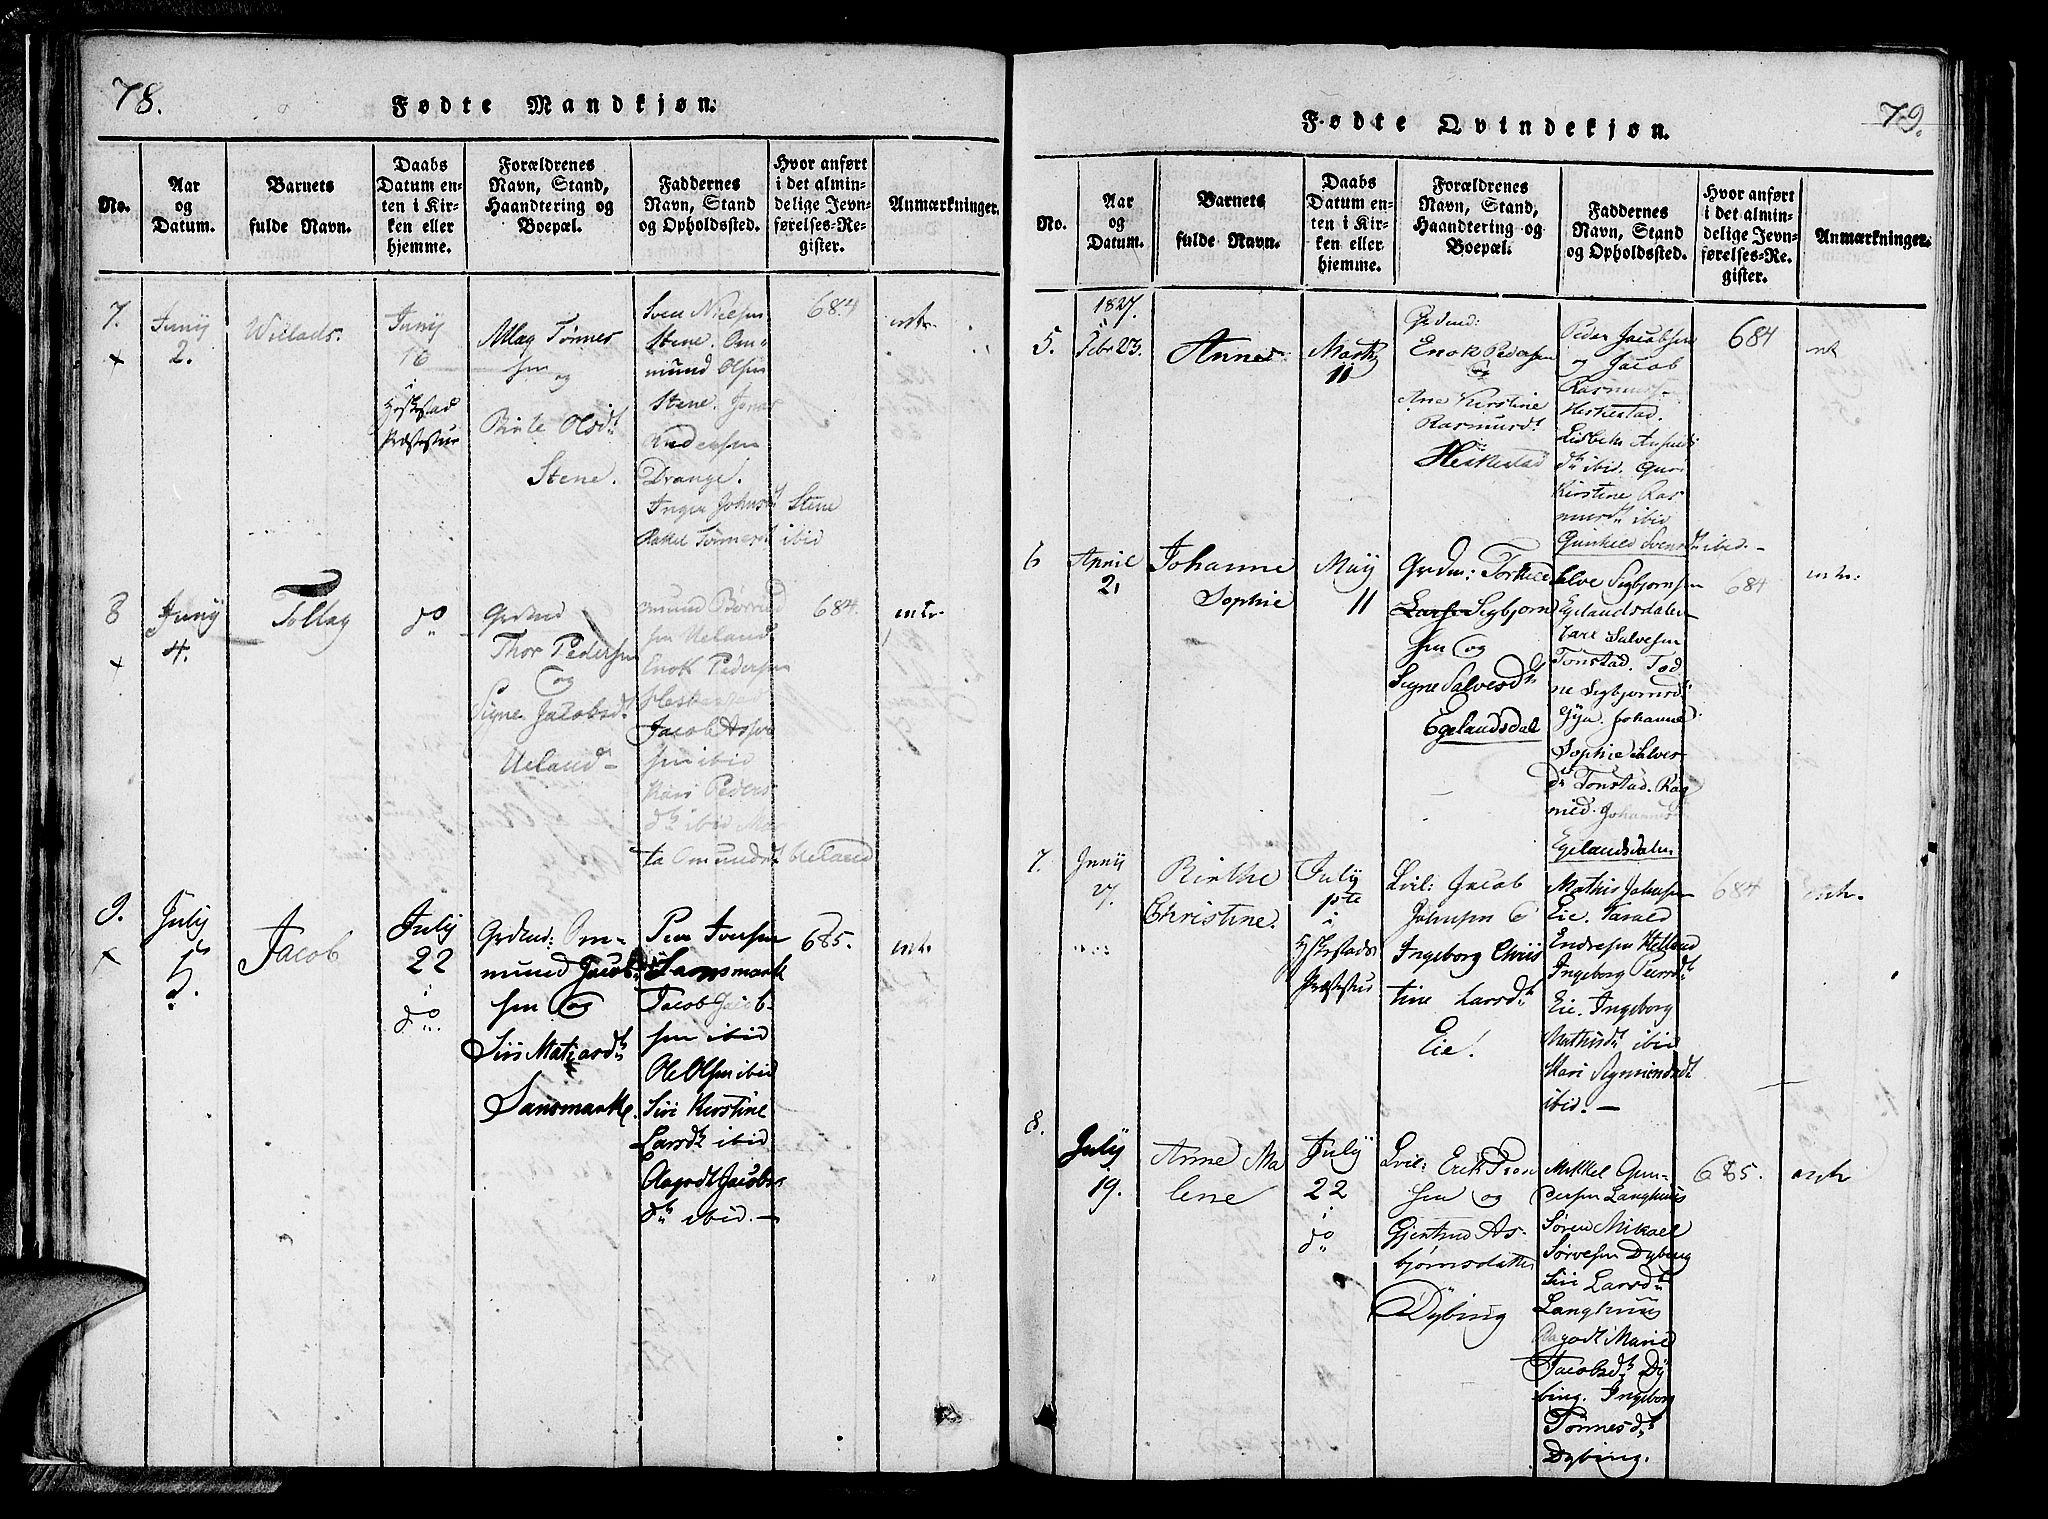 78.
Fødte Mandkjøn.
No.
Aar
og
Datum.
Barnets
fulde Navn.
Daabs
Datum en-
ten i Kir-
ken eller
hjemme.
Forældrenes
Navn, Stand,
Haandtering og
Boepæl.
Faddernes
Navn, Stand
og Opholdssted.
Hvor anført
i det almin-
delige Jevn-
førelses-Re-
gister.
Anmærkninger.
7.
Junÿ
2.
Willads.
Junÿ
16
i
Præstestue
Tønnes
sen
og
Birte Olsdt
Stene.
Sven Nielsen
Stene. Om-
mund Olsen
Stene. Jonas
Andersen
Drange.
Inger Johnsdt Stene
Rakel Tønnesdt ibid
684
8
Junÿ
4.
Tollag
do
Grdmd
Thor Pedersen
og
Signe Jacobsdt
Ueland -
sen Ueland
Enok Pedersen
Heskestad
Jacob
sen ibid
Kari Peders
dtr ibid Mar
ta Omundsdt Ueland
684.
9.
July
5.
Jacob
July
22
i
do.
Grdmd: Om-
mund Jacob
sen og
Siri
Sandsmark.
Peer Iversen
Sandsmark
Jacob Jacob-
sen ibid
Ole Olsen ibid
Siri Kirstine
Larsdtr ibid
Aagodt Jacobs
dtr ibid. -
685.
79.
Fødte Qvindekjøn.
No.
Aar
og
Datum.
Barnets
fulde Navn.
Daabs
Datum en-
ten i Kir-
ken eller
hjemme.
Forældrenes
Navn, Stand,
Haandtering og
Boepæl.
Faddernes
Navn, Stand
og Opholdssted.
Hvor anført
i det almin-
delige Jevn-
førelses-Re-
gister.
Anmærkninger.
5.
1827.
Febr 23.
Anne
Marty
11
Grdmd:
Enok Pedersen
og
Ane Kirstine
Rasmusdt
Heskestad
Peder Jacobsen
og Jacob
Rasmus-
Heskestad.
Lisbeth
dtr ibid.
Kirstine Ras
musdt ibid
Gunhild Svensdt ibid. -
684
6
April
21
Johanne
Sophie
Maÿ
11
Grdm: Torkild
Larsen Segbjørn
sen og
Signe Salvesdt
Egelandsdal
Salve Segbjørnsen
Egelandsdalen
Tarel Salvesen
Tonstad. Tod
ne Segbjørnsdt
Gya. Johanne
Sophie Salves
dtr Tonstad. Rag
nild Johannesdt
Egelandsdalen
684
7.
Junÿ
27.
Birthe
Christine.
Julÿ
1ste
i
Heskestads
Præstestue
Lvil: Jacob
Johnsen &
Ingeborg Chris
tine Larsdtr
Eie.
Mathis Johnsen
Eie. Tarald
Endresen Hetland
Ingeborg Peersdt
Eie. Ingeborg
Mathisdt ibid
Kari Sigmundsdt
ibid. -
684
8.
Julÿ
19.
Anne Ma
lene
Julÿ
22
i
do
Lvil: Erik Tron
sen og
Gjertrud As-
bjørnsdatter
Dÿbing
Mikkel Gun-
dersen Langhuus
Søren Mikael
Sørvesen Dybing
Siri Larsdt
Langhuus
Aagodt Marie
Jacobsdt Dÿ
bing. Ingeborg
Tønnesdt
Dybing.
685.